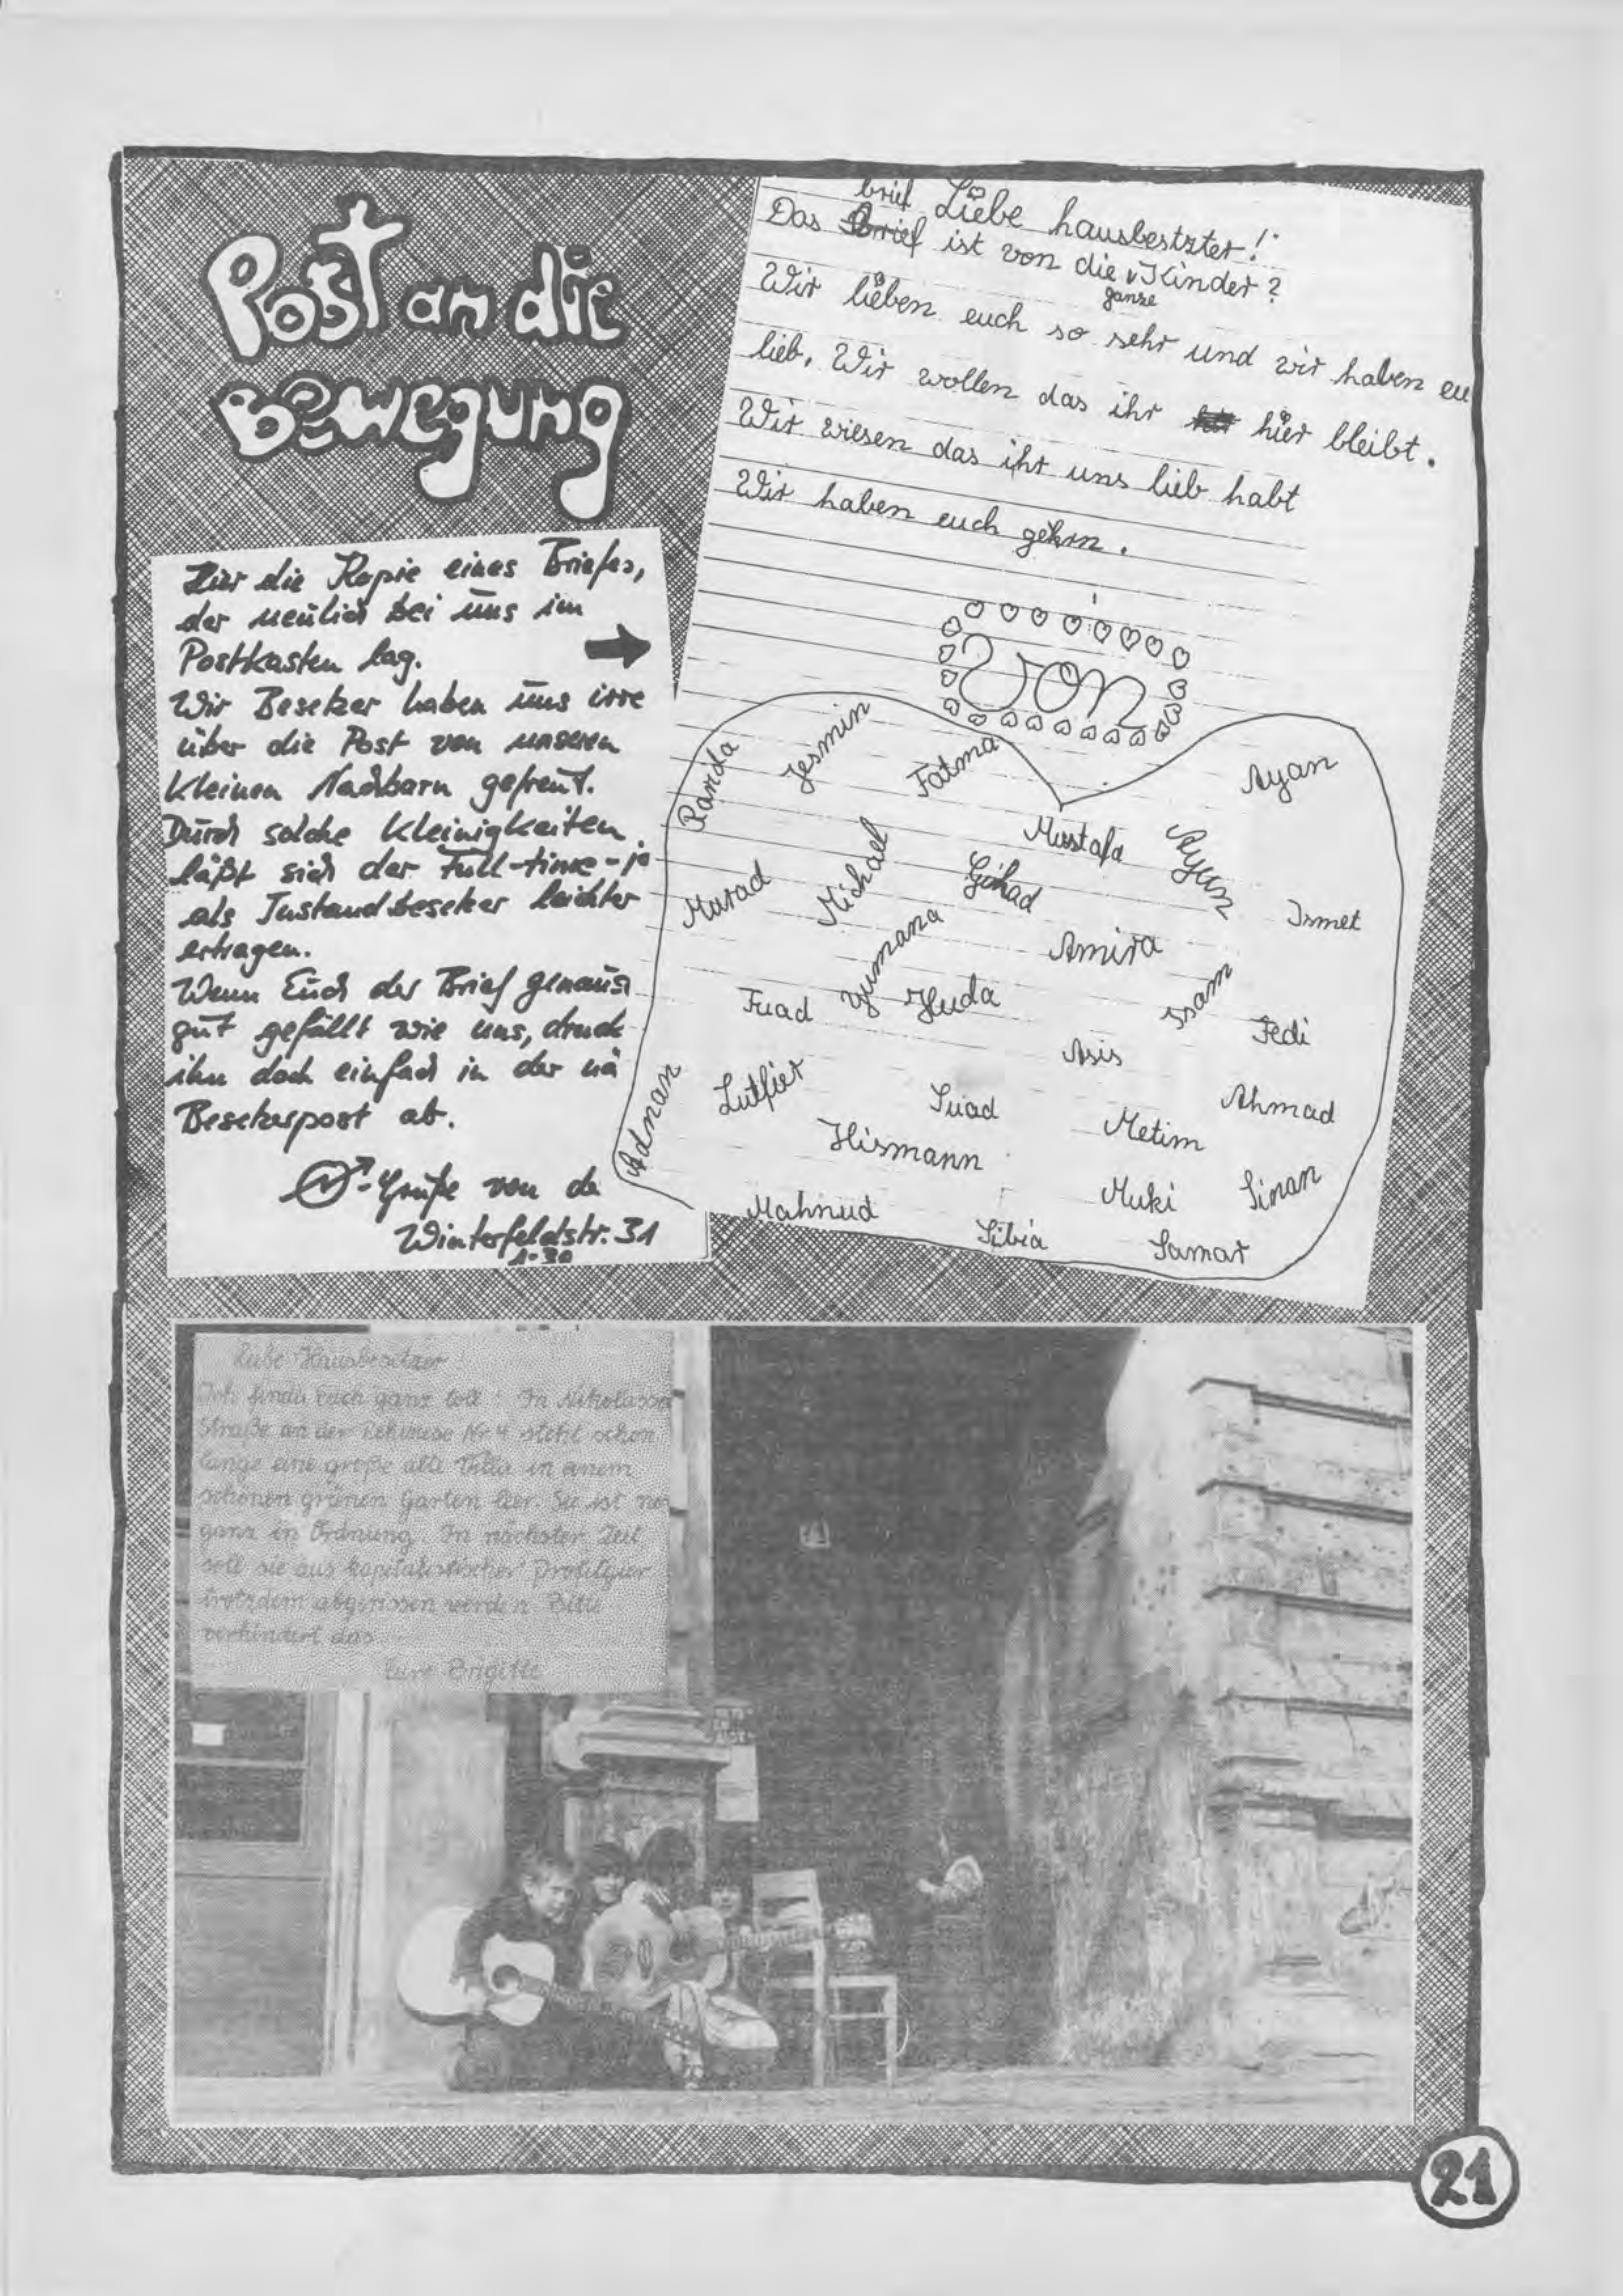 Post an die
Bewegung
Hier die Kopie eines Briefes,
der neulich bei uns im
Postkasten lag.
Wir Besetzer haben uns irre
über die Post von unseren
kleinen Nachbarn gefreut.
Durch solche Kleinigkeiten
läßt sich der Full-time-jo
als Instandbesetzer leichter
ertragen.
Wenn Euch der Brief genauso
gut gefällt wie uns, druck
ihn doch einfach in der nä
Besetzerpost ab.
-Grüße von de
Winterfeldtstr. 31
Liebe hausbestzter!
brief
Das Brief ist von die Kinder?
ganze
Wir lieben euch so sehr und wir haben eu
lieb. Wir wollen das ihr hier bleibt.
Wir wiesen das iht uns lieb habt
Wir haben euch gehrn.
Von
Randa
Jesmin
Fatma
Ayan
Mustafa
Aygun
Murad
Michael
Gihad
Ismet
Yumana
Amira
Fuad
Huda
Issam
Fedi
Asis
Adnan
Lutfier
Suad
Ahmad
Metim
Hismann
Muki
Sinan
Mahnud
Sibia
Samar
Liebe Hausbesitzer!
Ich finde euch ganz toll! In Nikolassee
Straße an der Rehwiese Nr 4 steht schon
lange eine große alte Villa in einem
schönen grünen Garten leer. Sie ist no
ganz in Ordnung. In nächster Zeit
soll sie aus kapitalistischer Profitgier
trotzdem abgerissen werden. Bitte
verhindert das
Eure Brigitte
21